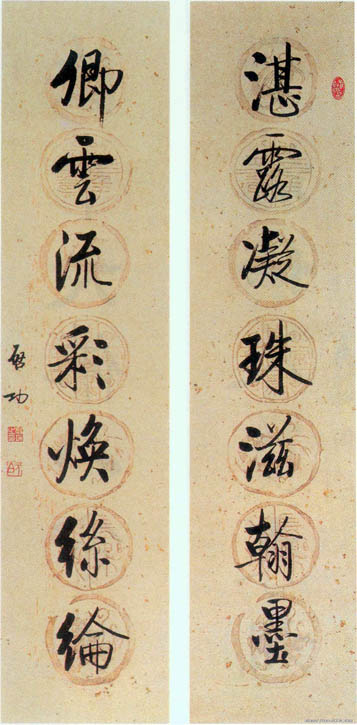 湛露凝珠滋翰墨
卿雲流彩焕絲綸
启功